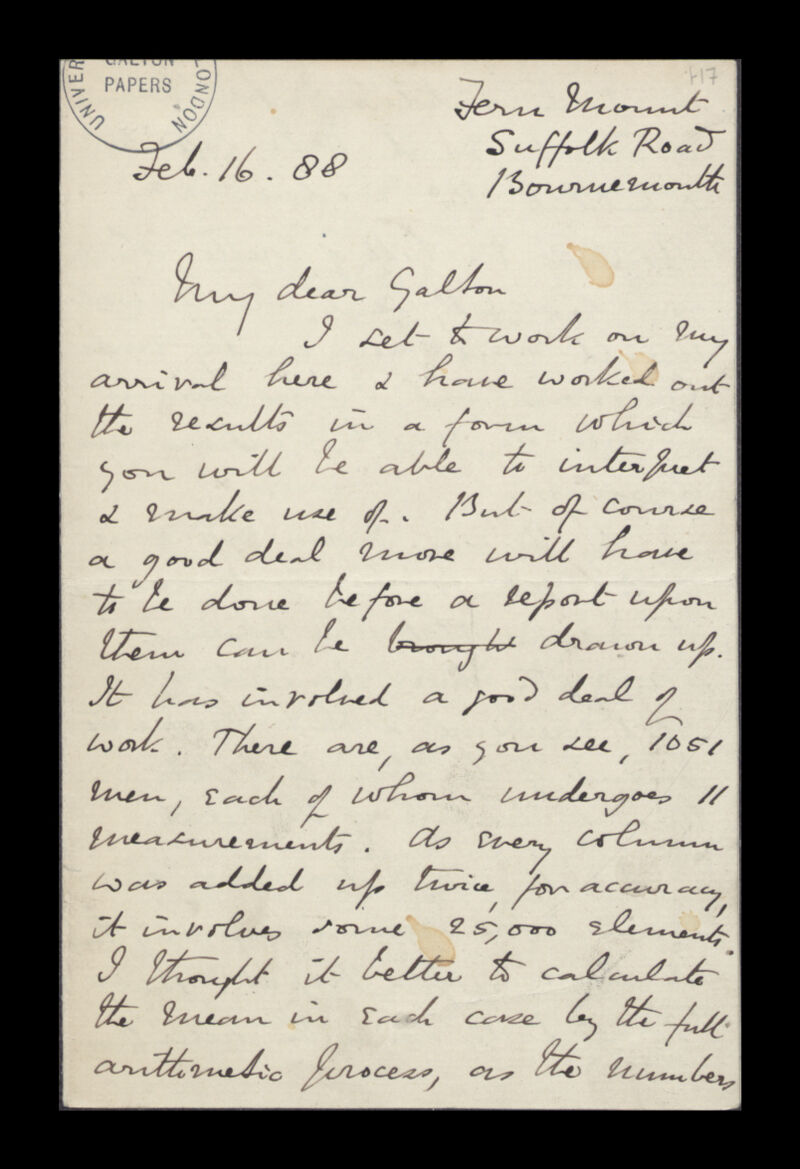 GALTON
PAPERS
UNIVER
LONDON
Fern Mount
Suffolk Road
Bournemouth
Feb. 16. 88
My dear Galton
I set to work on my
arrival here & have worked out
the results in a form which
you will be able to interpret
& make use of. But of course
a good deal more will have
to be done before a report upon
them can be brought drawn up.
It has involved a good deal of
work. There are, as you see, 1051
men, each of whom undergoes 11
measurements. As every column
was added up twice, for accuracy,
it involves some 25,000 elements.
I thought it better to calculate
the mean in each case by the full
arithmetic process, as the numbers